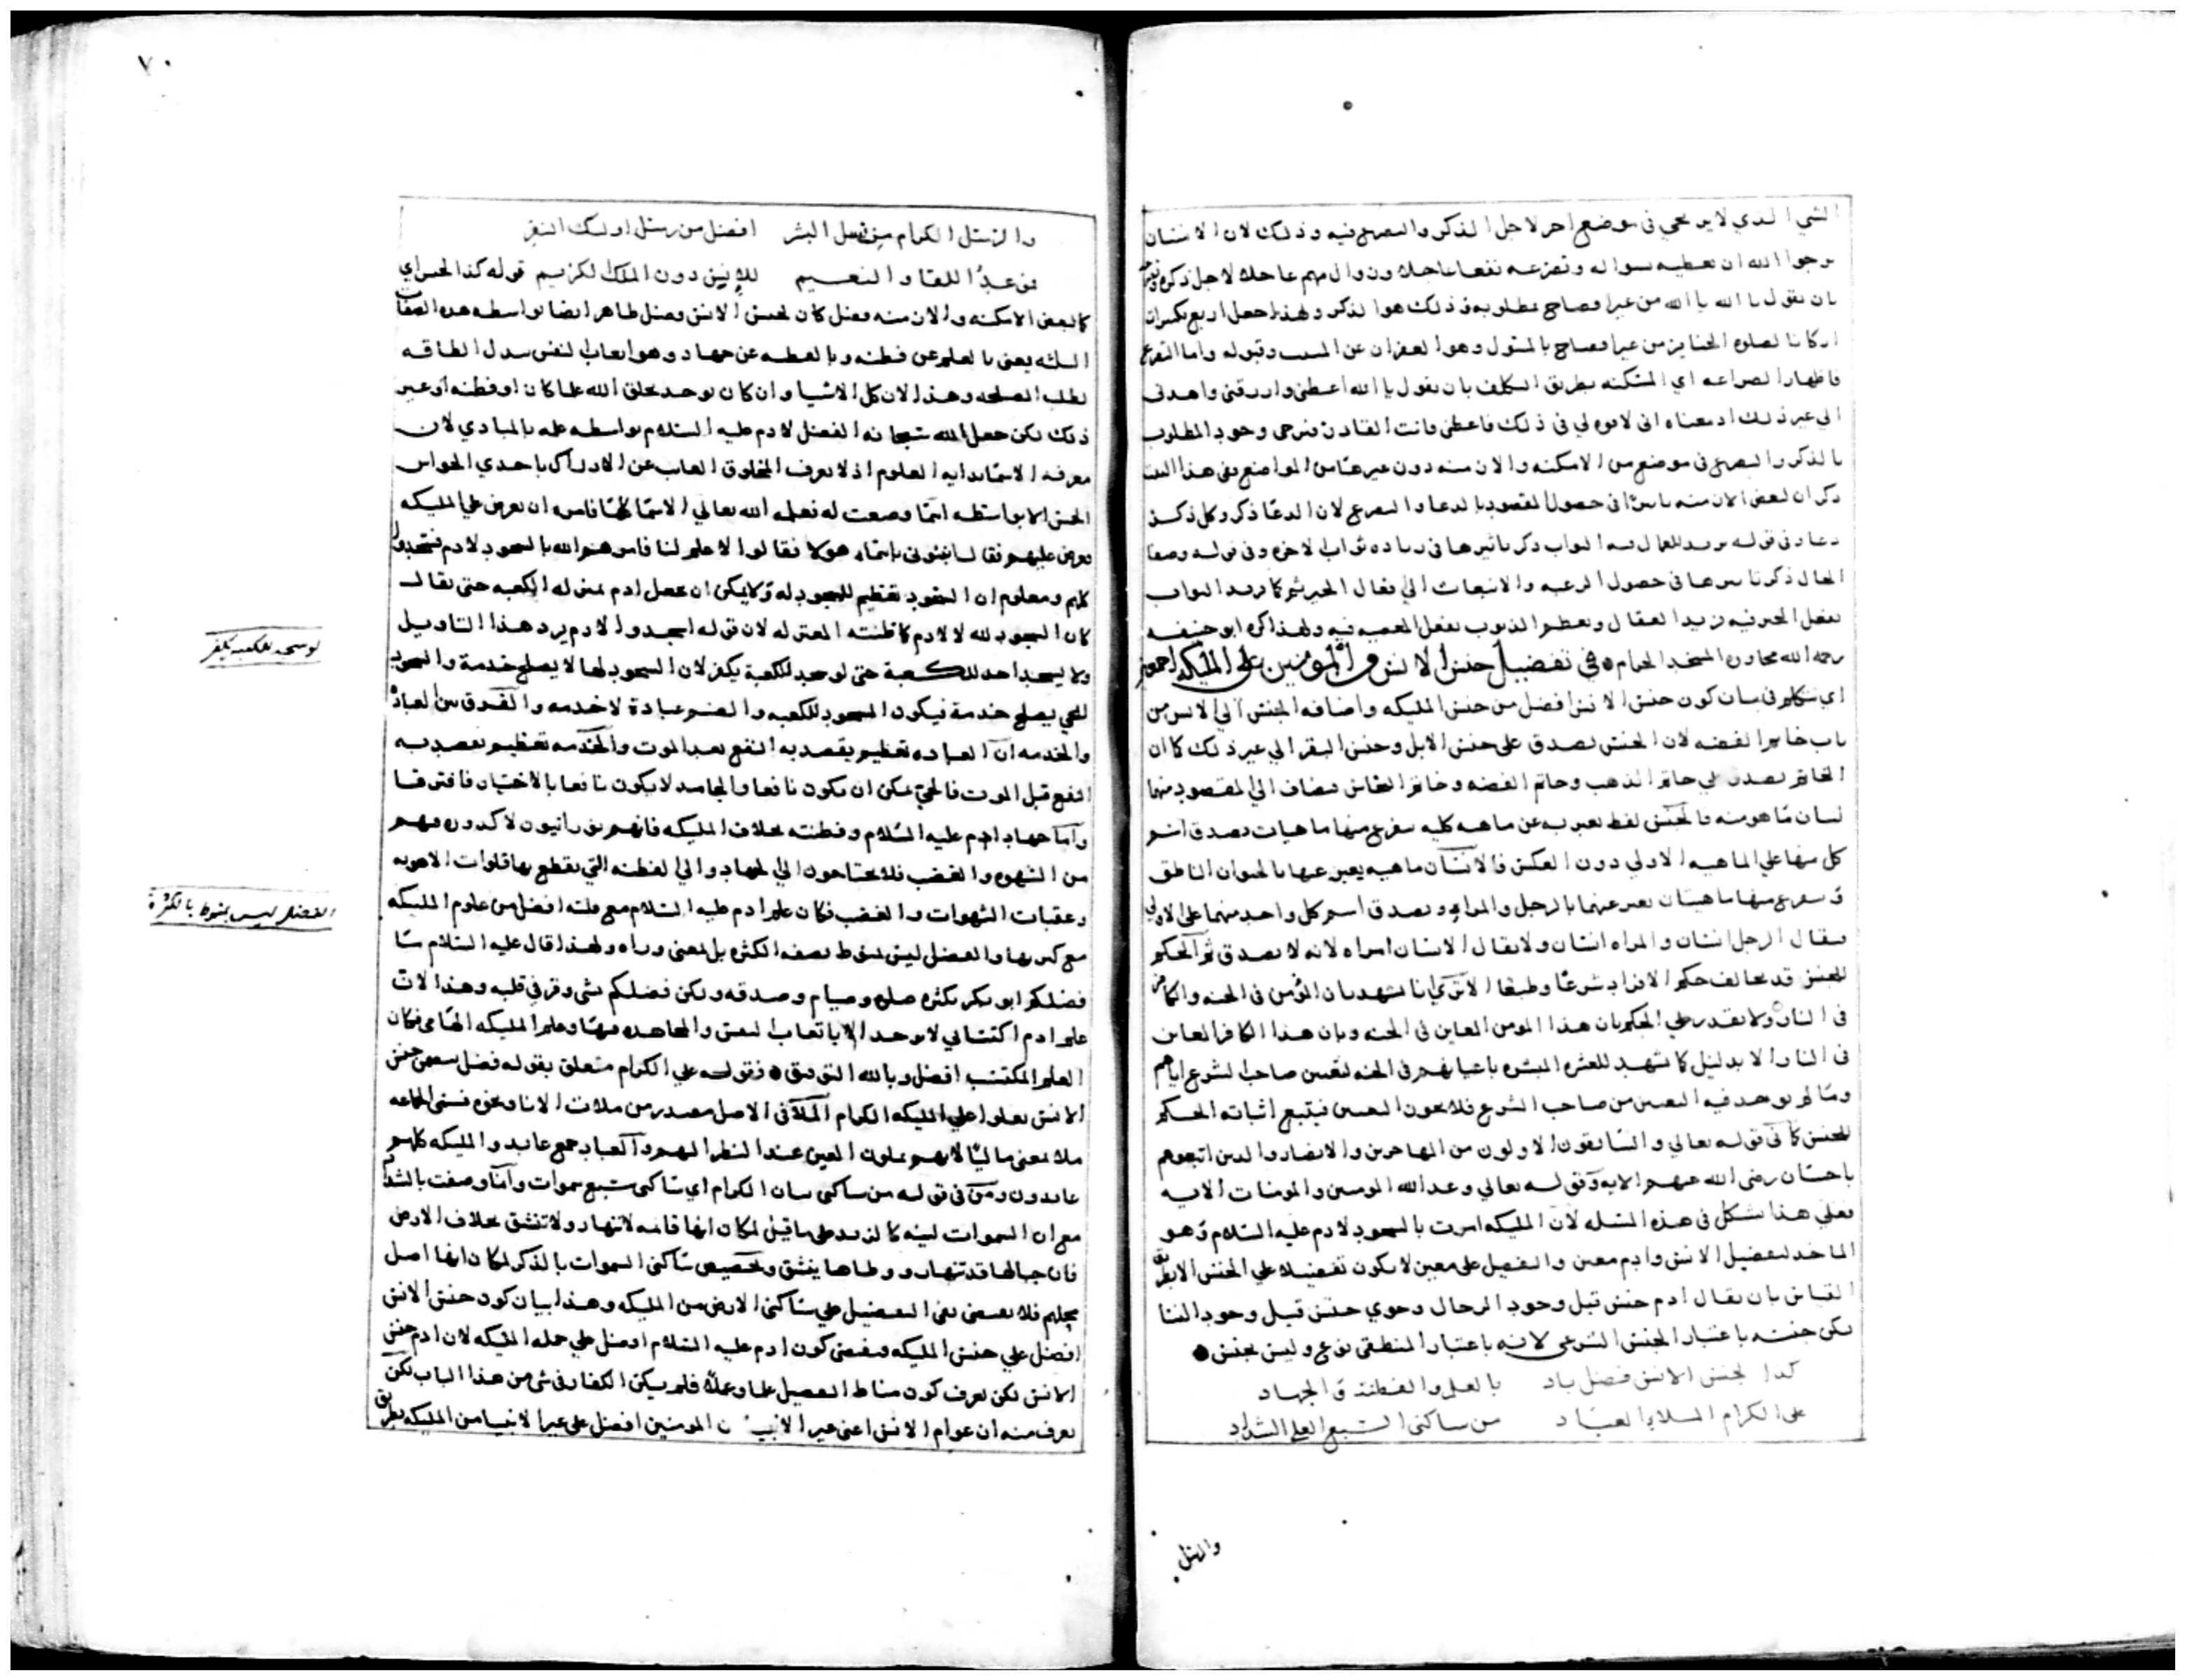 الشي الذي لا يرتجي في موضع اخر لاجل الذكر والتضرع فيه وذلك لان الانسان
يرجوا الله ان يعطيه سواله وتضرعه نفعا عاجلا
بان يقول يا الله يا الله من غير افصاح بمطلوبه فذلك هو الذكر ولهذا جعل اربع تكبيرات
اركانا لصلوه الجنايز من غير افصاح بالمسئول وهو الغفران عن الميت وقبوله واما التضرع
فاظهار الضراعه اي المسكنه بطريق التكلف بان يقول يا الله اعطني وارزقني واهدني
الي غير ذلك اذ معناه اني لا قوه لي في ذلك فاعطني فانت القادر فترجي وجود المطلوب
بالذكر والتضرع في موضع من الامكنه والازمنه دون غيرها من المواضع ففي هذا البيت
ذكر ان لبعض الازمنه تاثيرا في حصول المقصود بالدعا والتضرع لان الدعا ذكر وكل ذكر
دعا وفي قوله يزيد للعمال فيه الثواب ذكر تاثيرها في زياده ثواب الاخره وفي قوله وصفا
الحال ذكر تاثيرها في حصول الرغبه والانبعاث الي فعال الخير ثم كما يزيد الثواب
بفعل الخير فيه يزيد العقاب ويعظم الذنوب بفعل المعصيه فيه ولهذا كره ابو حنيفه
رحمه الله مجاورة المسجد الحرام في تفضيل جنس الانس والمؤمنين على المليكه اجمعين
اي نتكلم في بيان كون جنس الانس افضل من جنس المليكه واضافه الجنس الي الانس من
باب خاتم الفضه لان الجنس يصدق على جنس الابل وجنس البقر الي غير ذلك كما ان
الخاتم يصدق علي خاتم الذهب وخاتم الفضه وخاتم النحاس فيضاف الي المقصود منها
لبيان ما هو منه والجنس لفظ يعبر به عن ماهيه كليه يتفرع منها ماهيات يصدق اسم
كل منها علي الماهيه الاولي دون العكس فالانسان ماهيه يعبر عنها بالحيوان الناطق
ويتفرع منها ماهيتان يعبر عنهما بالرجل والمراه ويصدق اسم كل واحد منهما على الاولي
فيقال الرجل انسان والمراه انسان ولا يقال الانسان امراه لانه لا يصدق ثم الحكم
للجنس قد يخالف حكم الافراد شرعا وطبعا الا تري انا نشهد بان المؤمن في الجنه والكافر
في النار ولا نقدر علي الحكم بان هذا المومن المعاين في الجنه وبان هذا الكافر المعاين
في النار الا بدليل كما نشهد للعشره المبشره باعيانهم في الجنه لتعيين صاحب الشرع اياهم
وما لم يوجد فيه التعيين من صاحب الشرع فلا يجوز التعيين فيتبع اثباته الحكم
للجنس كما في قوله تعالي والسابقون الاولون من المهاجرين والانصار والذين اتبعوهم
باحسان رضي الله عنهم الايه وقوله تعالي وعد الله المومنين والمومنات الايه
فعلي هذا يشكل في هذه المسله لان المليكه امرت بالسجود لادم عليه السلام وهو
الماخذ لتفضيل الانس وادم معين والتفضيل على معين لا يكون تفضيلا علي الجنس الا بطريق
القياس بان يقال ادم جنس قبل وجود الرجال وحوي جنس قبل وجود النسا
لكن جنسه باعتبار الجنس الشرعي لانه باعتبار المنطقي نوع وليس بجنس
كذا لجنس الانس فضل باد بالعلم والفطنة والجهاد
على الكرام الملاء العباد من ساكني السبع العلى الشداد
والرسل
٧٠
والرسل الكرام من نسل البشر افضل من رسل اولئك النفر
من عبد اللقا والنعيم للانس دون الملك الكريم قوله كذا لجنس اي
كما لبعض الامكنه والازمنه فضل كان لجنس الانس فضل ظاهر ايضا بواسطه هذه الصفات
الثلثه يعني بالعلم عن فطنه وبالفطنه عن جهاد وهو اتعاب النفس ببذل الطاقه
لطلب المصلحه وهذا لان كل الاشيا وان كان يوجد بخلق الله علما كان او فطنه او غير
ذلك لكن جعل الله سبحانه الفضل لادم عليه السلام بواسطه علمه بالمبادي لان
معرفه الاسما بدايه العلوم اذ لا يعرف المخلوق الغايب عن الادراك باحدي الحواس
الخمس الا بواسطه اسما وضعت له فعلمه الله تعالي الاسما كلها فامره ان يعرض علي المليكه
فعرض عليهم فقال انبئوني باسماء هولا فقالوا لا علم لنا فامرهم الله بالسجود لادم فسجدوا
كلهم ومعلوم ان السجود تعظيم للمسجود له ولا يمكن ان يجعل ادم بمنزله الكعبه حتى يقال
كان السجود لله لا لادم كما ظنته المعتزله لان قوله اسجدوا لادم يرد هذا التاويل
ولا يسجد احد للكعبة حتى لو سجد للكعبة يكفر لان السجود لها لا يصلح خدمة والسجود
للحي يصلح خدمة فيكون السجود للكعبه والصنم عبادة لا خدمه والفرق بين العبادة
والخدمه ان العباده تعظيم يقصد به النفع بعد الموت والخدمه تعظيم يقصد به
النفع قبل الموت فالحي يمكن ان يكون نافعا والجامد لا يكون نافعا بالاختيار فافترقا
واما جهاد ادم عليه السلام وفطنته بخلاف المليكه فانهم نورانيون لا كدوره فيهم
من الشهوه والغضب فلا يحتاجون الي الجهاد والي الفطنه التي يقطع بها فلوات الاهويه
وعقبات الشهوات والغضب فكان علم ادم عليه السلام مع قلته افضل من علوم المليكه
مع كثرتها والفضل ليس بمنوط بصفه الكثره بل بمعنى وراه ولهذا قال عليه السلام ما
فضلكم ابو بكر بكثره صلوة وصيام وصدقه ولكن فضلكم بشي وقر في قلبه وهذا لان
علم ادم اكتسابي لا يوجد الا باتعاب النفس والمجاهده فيها وعلم المليكه الهامي فكان
العلم المكتسب افضل وبالله التوفيق فقوله علي الكرام متعلق بقوله فضل يعني جنس
الانس يعلو علي المليكه الكرام الملآ في الاصل مصدر من ملات الانا ونحوه فسمي الجماعه
ملاء بمعنى ماليا لانهم يملون العين عند النظر اليهم والعباد جمع عابد والمليكه كلهم
عابدون ومن في قوله من ساكني بيان الكرام اي ساكني سبع سموات وانما وصفت بالشداد
مع ان السموات لينه كالزبد على ما قيل لمكان انها قائمه لا تنهار ولا تنشق بخلاف الارض
فان جبالها قد تنهار ووطاها ينشق وتخصيص ساكني السموات بالذكر لمكان انها اصل
محلهم فلا يقتضي نفي التفضيل علي ساكني الارض من المليكه وهذا بيان كون جنس الانس
افضل علي جنس المليكه ويقتضي كون ادم عليه السلام افضل علي جمله المليكه لان ادم جنس
الانس لكن يعرف كون مناط التفضيل علما وعملا فلم يكن الكفار في شي من هذا الباب لكن
يعرف منه ان عوام الانس اعني غير الانبيا من المومنين افضل على غير الانبيا من المليكه بطريق
لو سجد للكعبه يكفر
الفضل ليس بمنوط بالكثرة